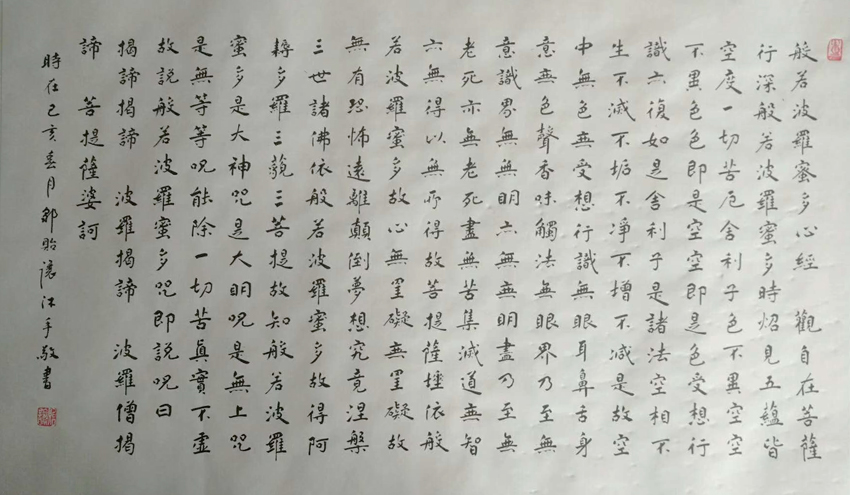 般若波羅蜜多心經 觀自在菩薩
行深般若波羅蜜多時炤見五蘊皆
空度一切苦厄舍利子色不異空空
不異色色即是空空即是色受想行
識亦復如是舍利子是諸法空相不
生不滅不垢不凈不增不減是故空
中無色無受想行識無眼耳鼻舌身
意無色聲香味觸法無眼界乃至無
意識界無無明亦無無明盡乃至無
老死亦無老死盡無苦集滅道無智
亦無得以無所得故菩提薩埵依般
若波羅蜜多故心無罣礙無罣礙故
無有恐怖遠離顛倒夢想究竟涅槃
三世諸佛依般若波羅蜜多故得阿
耨多羅三藐三菩提故知般若波羅
蜜多是大神咒是大明咒是無上咒
是無等等咒能除一切苦真實不虛
故說般若波羅蜜多咒即說咒曰
揭諦揭諦 波羅揭諦 波羅僧揭
諦 菩提薩婆訶
時在己亥春月鄒貽讓沐手敬書